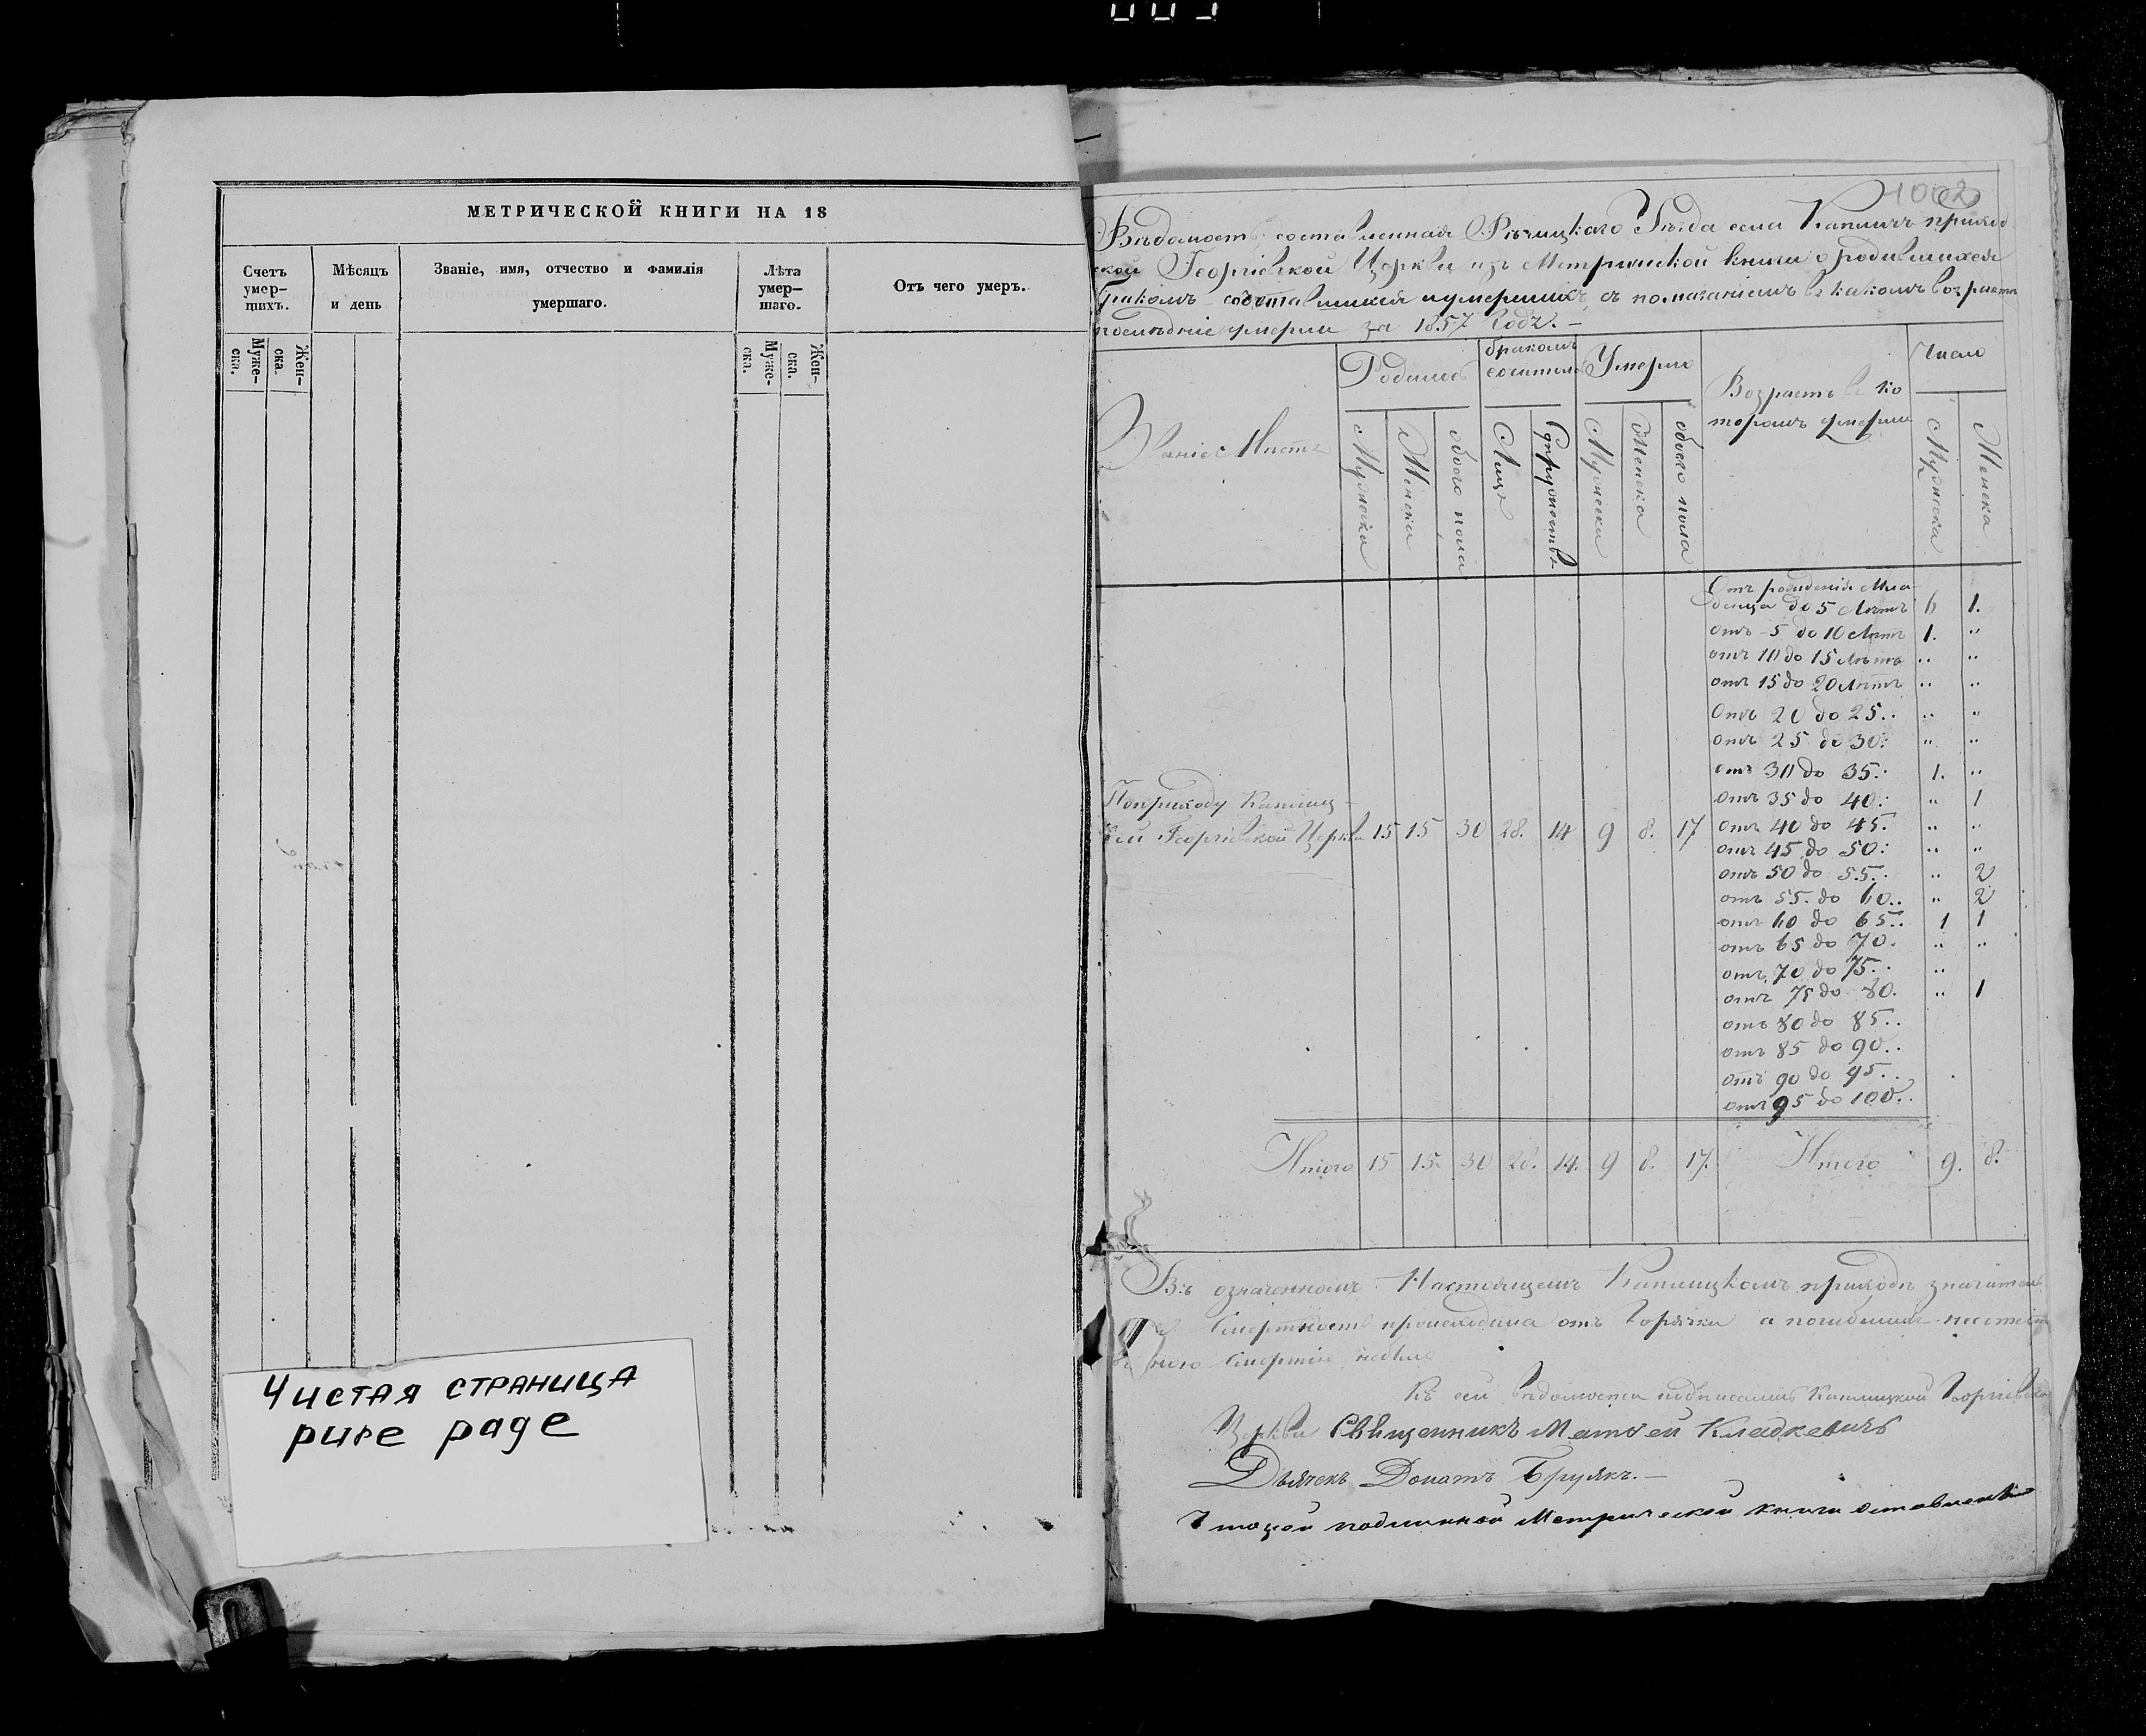 МЕТРИЧЕСКОЙ КНИГИ НА 18
Счетъ умер-
щихъ.
Мѣсяцъ
и день
Званіе, имя, отчество и фамилія
умершаго.
Лѣта
умер-
шаго.
Отъ чего умеръ.
Муже-
ска.
Жен-
ска.
Муже-
ска.
Жен-
ска.
Чистая страница
pure page
1002
Вѣдомость, составленная Рѣчицкаго Уѣзда села Капличъ приход
ской Георгіевской Церкви изъ Метрической книги о родившихся
бракомъ сочетавшихся и умершихъ, съ показаніемъ въ какомъ возрастѣ
послѣдніе умерли за 1857 Годъ. —
Званіе Мѣстъ
Родилось
бракомъ
сочеталось
Умерло
Возрастъ въ ко
торомъ умерли
Число
Мужеска
Женска
обоего пола
Лицъ
Супружествъ
Мужеска
Женска
обоего пола
Мужеска
Женска
Отъ рожденія Мла
денца до 5 Лѣтъ 6 1.
отъ 5 до 10 Лѣтъ 1. "
отъ 10 до 15 Лѣтъ " "
отъ 15 до 20 Лѣтъ " "
Отъ 20 до 25.. " "
отъ 25 до 30: " "
отъ 30 до 35.. 1. "
отъ 35 до 40: " 1
отъ 40 до 45. " "
отъ 45 до 50: " "
отъ 50 до 55.. " 2
отъ 55. до 60.. " 2
отъ 60 до 65.. 1 1
отъ 65 до 70. " "
отъ 70 до 75.. "
отъ 75 до 80. " 1
отъ 80 до 85..
отъ 85 до 90..
отъ 90 до 95..
отъ 95 до 100..
По приходу Каплиц-
кой Георгіевской Церкви 15 15 30 28. 14 9 8. 17
Итого 15 15. 30 28. 14. 9 8. 17. Итого 9. 8.
Въ означенномъ Настоящемъ Каплицкомъ приходѣ значител
Смертность происходила отъ Горячки а погибшихъ
Смертію небыло
Къ сей вѣдомости подписались Каплицкой Георгіевской
Церкви Священникъ Матѳей Кладкевичъ
Дьячекъ Донатъ Бруякъ. —
подлинной Метрической книги